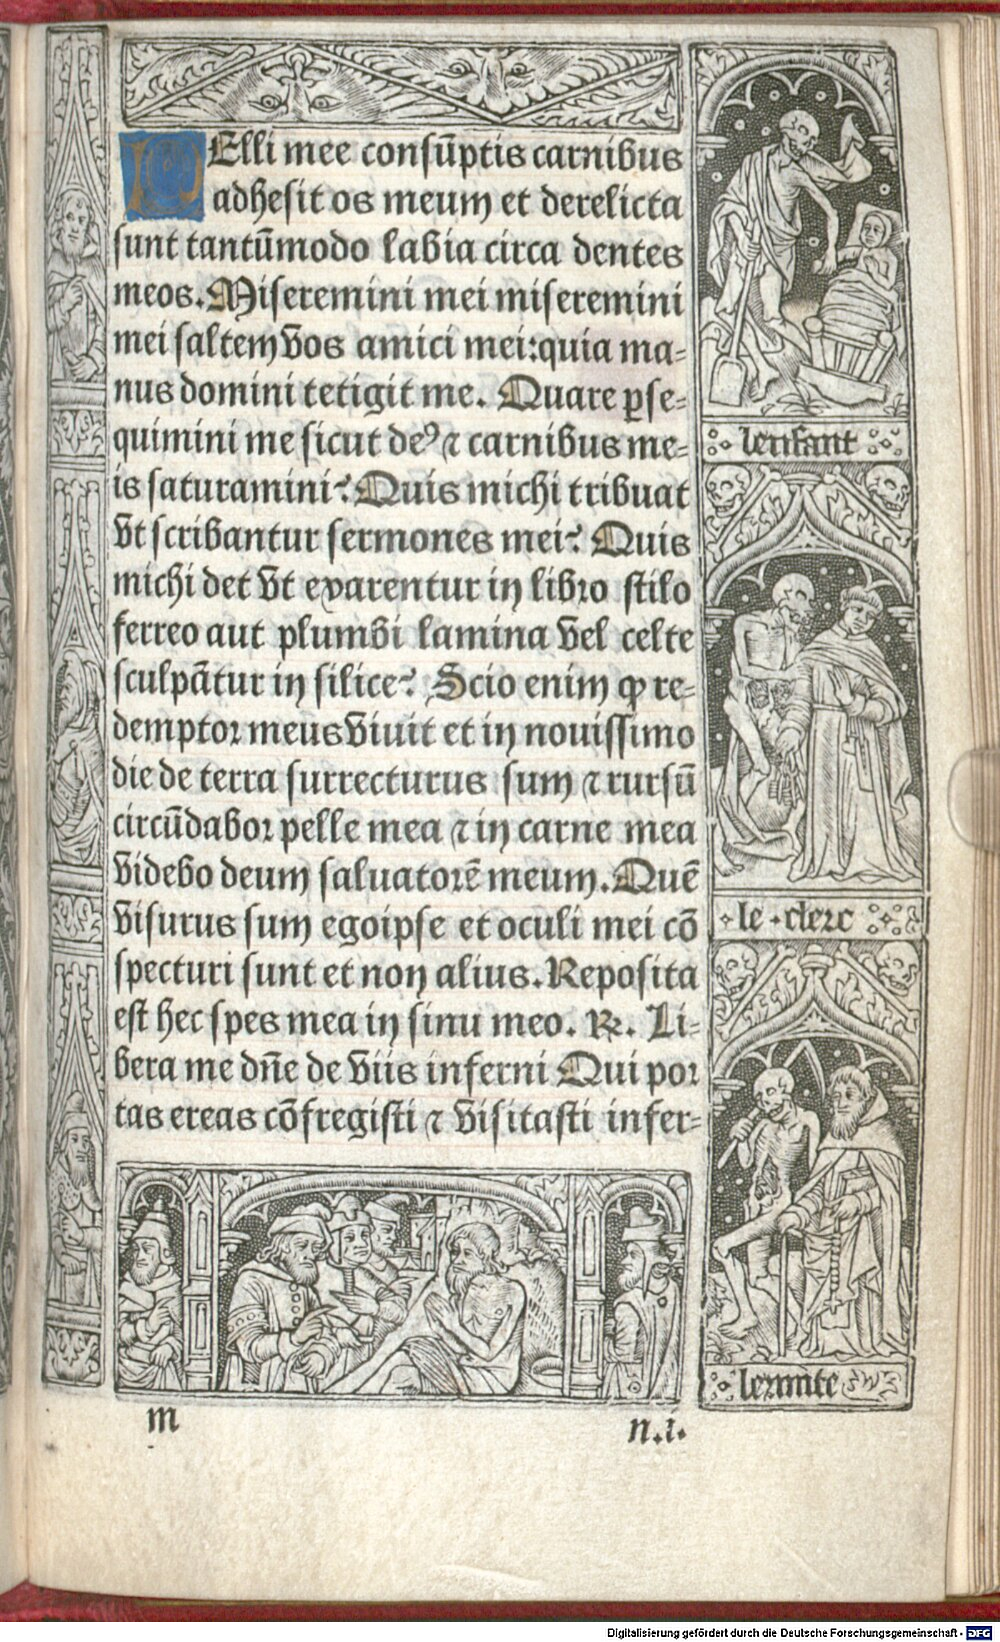 PElli mee consūptis carnibus
adhesit os meum et derelicta
sunt tantūmodo labia circa dentes
meos. Miseremini mei miseremini
mei saltem vos amici mei: quia ma-
nus domini tetigit me. Quare ꝑse-
quimini me sicut deꝰ ⁊ carnibus me-
is saturamini? Quis michi tribuat
vt scribantur sermones mei? Quis
michi det vt exarentur in libro stilo
ferreo aut plumbi lamina vel celte
sculpātur in silice? Scio enim ꝙ re-
demptor meus viuit et in nouissimo
die de terra surrecturus sum ⁊ rursū
circūdabor pelle mea ⁊ in carne mea
videbo deum saluatorē meum. Quē
visurus sum ego ipse et oculi mei cō
specturi sunt et non alius. Reposita
est hec spes mea in sinu meo. ℟. Li-
bera me dn̄e de viis inferni Qui por
tas ereas cōfregisti ⁊ visitasti infer-
lenfant
le clerc
lermite
m n.i.
Digitalisierung gefördert durch die Deutsche Forschungsgemeinschaft - DFG